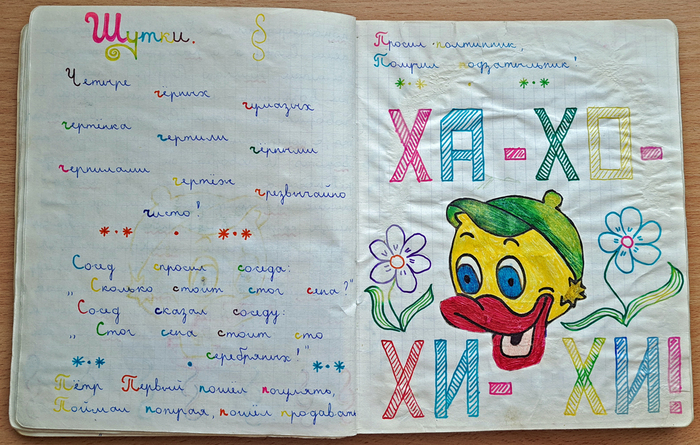 Шутки.
Четыре
черных
чумазых
чертёнка
чертили
черными
чернилами
чертёж
чрезвычайно
чисто!
Сосед спросил соседа:
„Сколько стоит стог сена?"
Сосед сказал соседу:
„Стог сена стоит сто
серебряных!"
Пётр Первый пошел погулять,
Поймал попугая, пошёл продавать
Просил полтинник,
Получил подзатыльник!
ХА-ХО-
ХИ-ХИ!